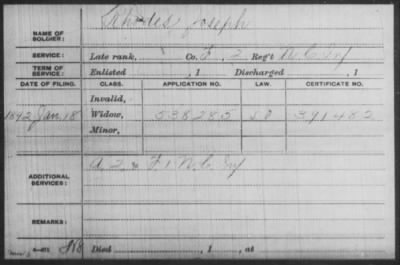 NAME OF SOLDIER: Rhodes Joseph
SERVICE: Late rank, Co. F, 2 Reg't N.C. Inf
TERM OF SERVICE: Enlisted , 1 Discharged , 1
DATE OF FILING. CLASS. APPLICATION NO. LAW. CERTIFICATE NO.
Invalid,
1892 Jan. 18 Widow, 538285 391482
Minor,
ADDITIONAL SERVICES: A 2 & F 1 N.C. Inf
REMARKS:
Died , 1 , at